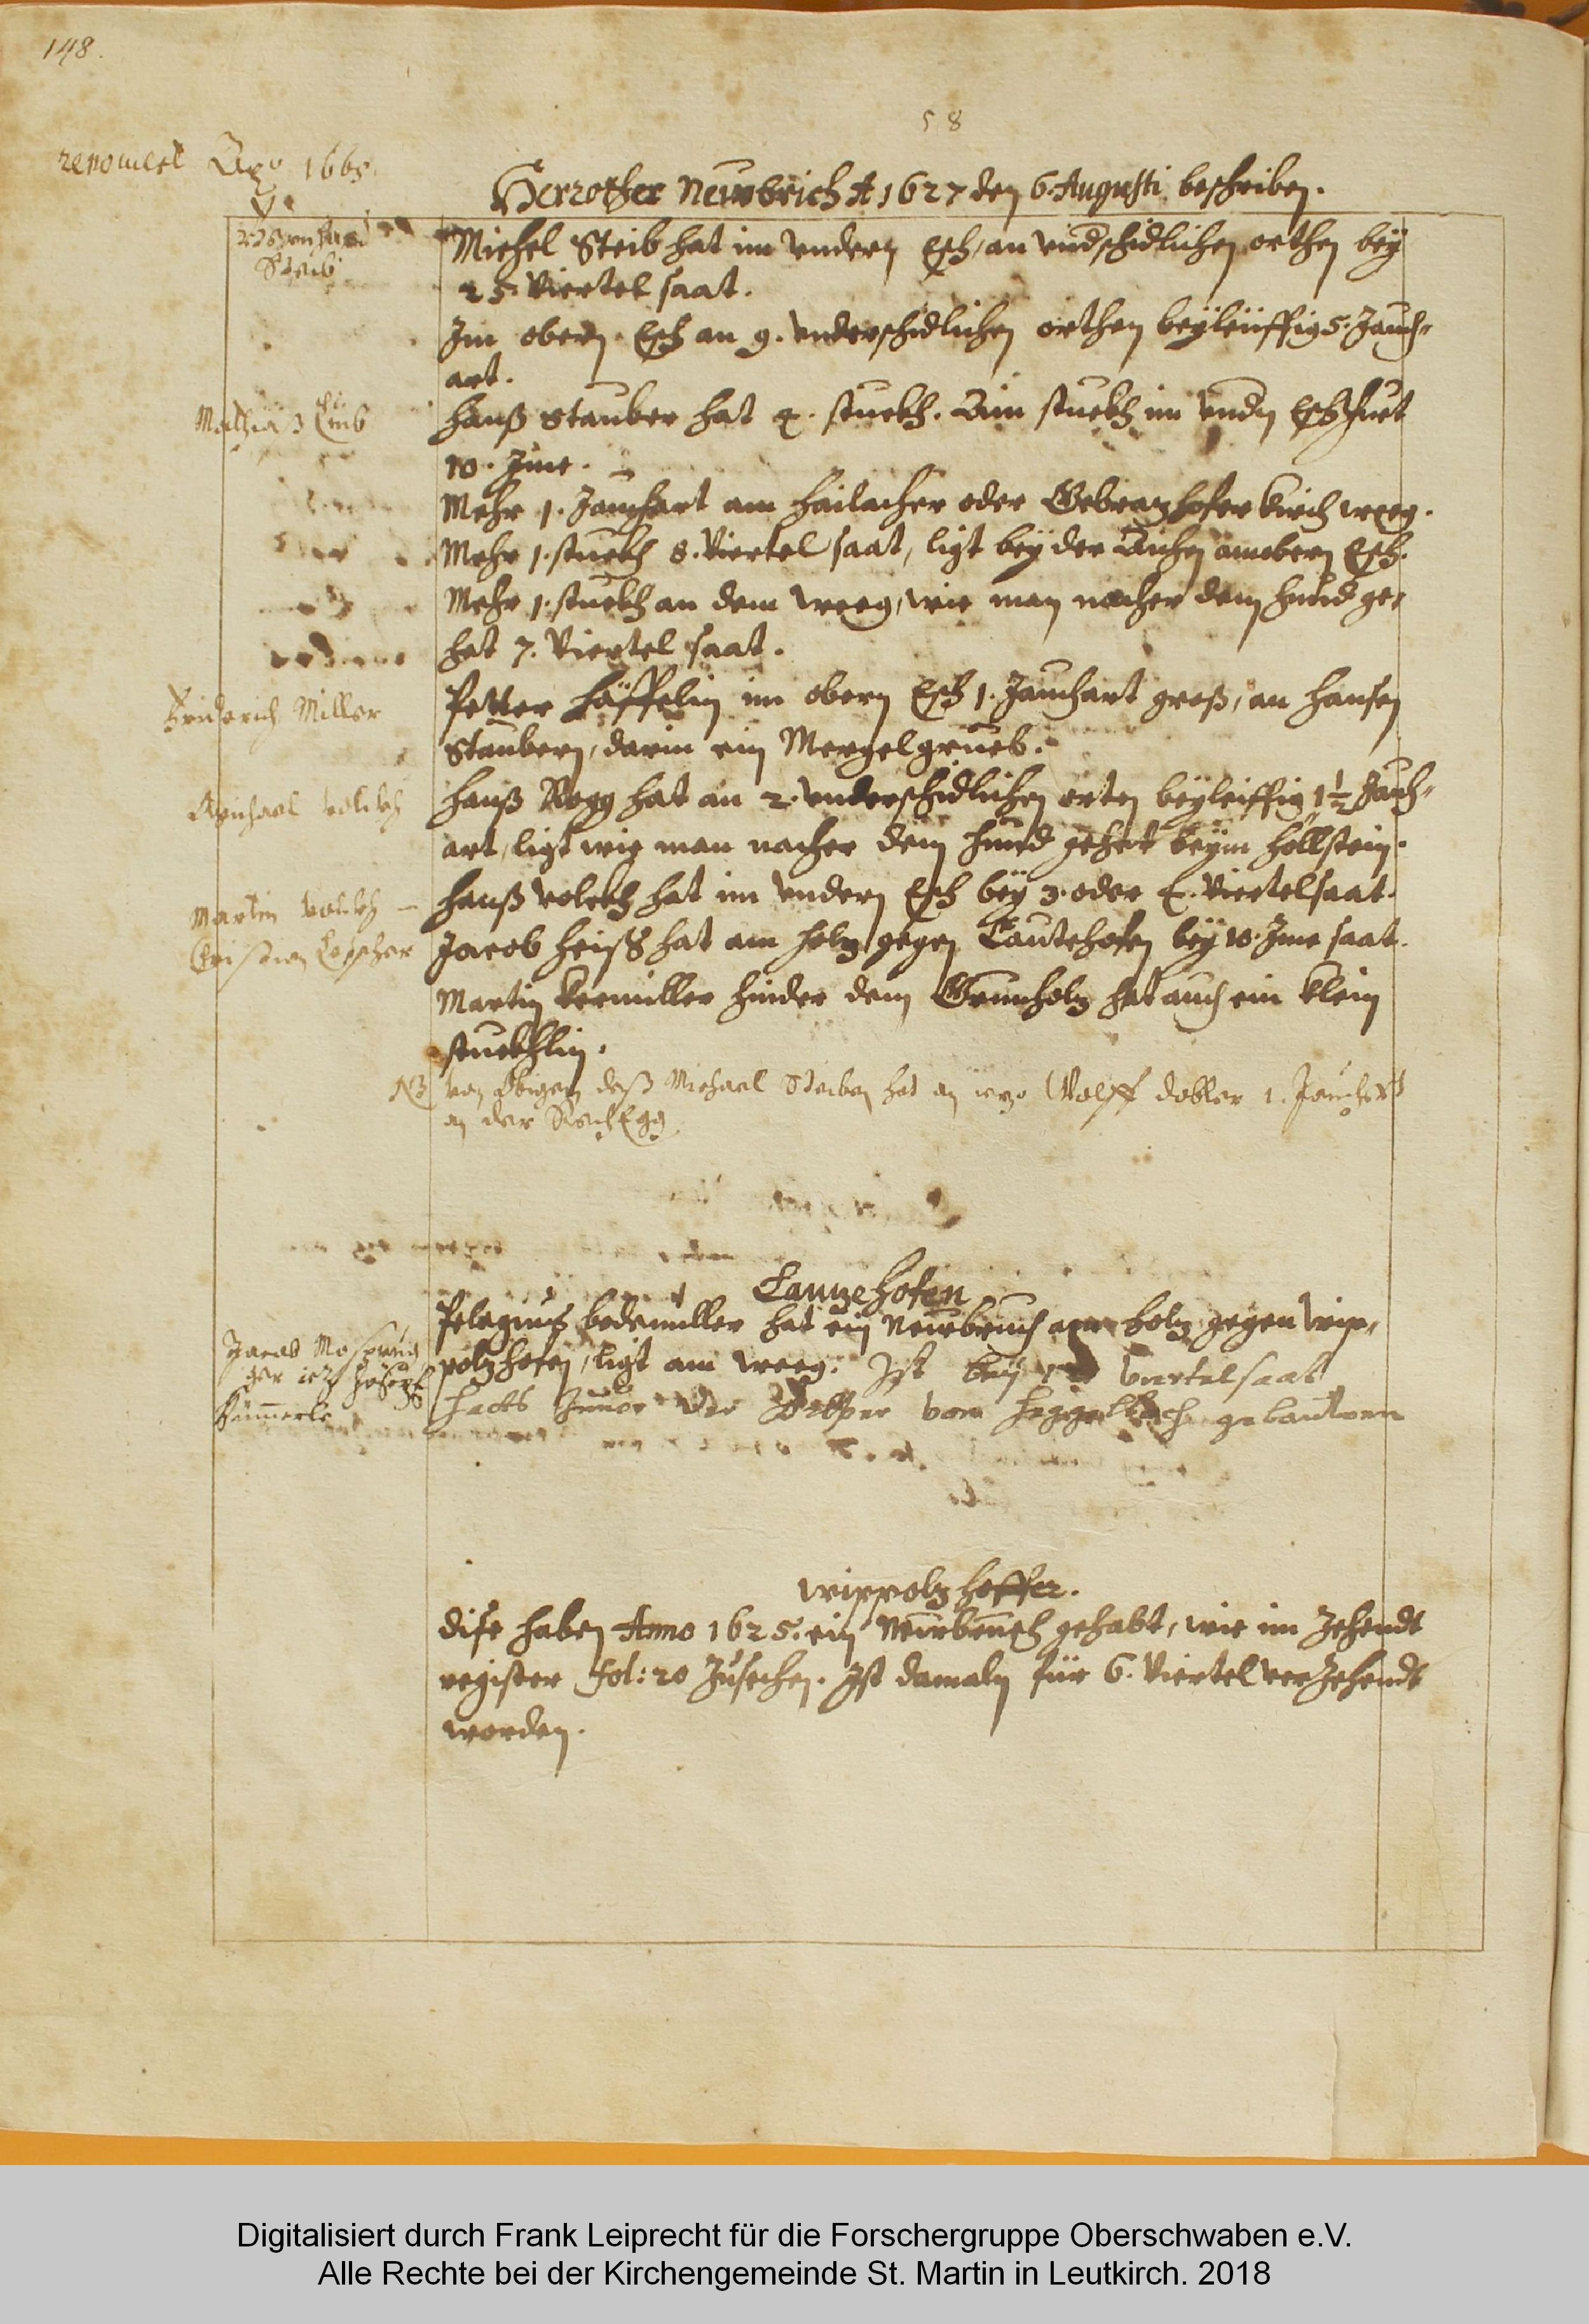 148.
58
renoviert Aº 1665.
Herrother Neubrich A 1627 den 6. Augusti beschriben.
Steib
Michel Steib hat im undern Esch, an undschidlichen orthen bey
25. Viertel saat.
Im obern Esch an 9. underschidlichen orthen beyleüffig 5. Jauch-
art.
Mathias
Hanß Stauber hat 4. stuckh. Ain stuckh im undn Esch
10. Ime.
Mehr 1. Jauchart am Hailacher oder Gebrazhofer kirchweeg.
Mehr 1. stuckh 8. Viertel saat, ligt bey der Aichen am obern Esch.
Mehr 1. stuckh an dem weeg, wie man nacher dem Hund ge-
het 7. Viertel saat.
Friderich Miller
Petter Häffelin im obern Esch 1. Jauchart groß, an Hansen
Staubern, darin ein Mergelgrueb.
Michael Volckh
Hanß Rogg hat an 2. underschidlichen orten beyleiffig 1½ Jauch-
art, ligt wie man nacher dem Hund gehet beym Hollstein.
Martin Volckh
Hanß Volckh hat im undern Esch bey 3. oder 4. Viertel saat.
Christian
Jacob Heiß hat am holz gegen Lautzehofen bey 10. Ime saat.
Martin Kermiller hinder dem Grunholz hat auch ein klein
stuckhlin.
NB von Obigen deß Michael Steiben hat Wolff dobler 1. Jauchert
an der
Lauzehofen
Pelagius bodenmiller hat ein Neubruch am holz gegen Wip-
polzhofen, ligt am weeg. Ist bey Viertel saat
Jacob
ger iez Joseph
Wippolzhoffer.
Dise haben Anno 1625. ein Neubruch gehabt, wie im Zehendt
register fol: 20 Zusechen. Ist damaln für 6. Viertel verzehendt
worden.
Digitalisiert durch Frank Leiprecht für die Forschergruppe Oberschwaben e.V.
Alle Rechte bei der Kirchengemeinde St. Martin in Leutkirch. 2018